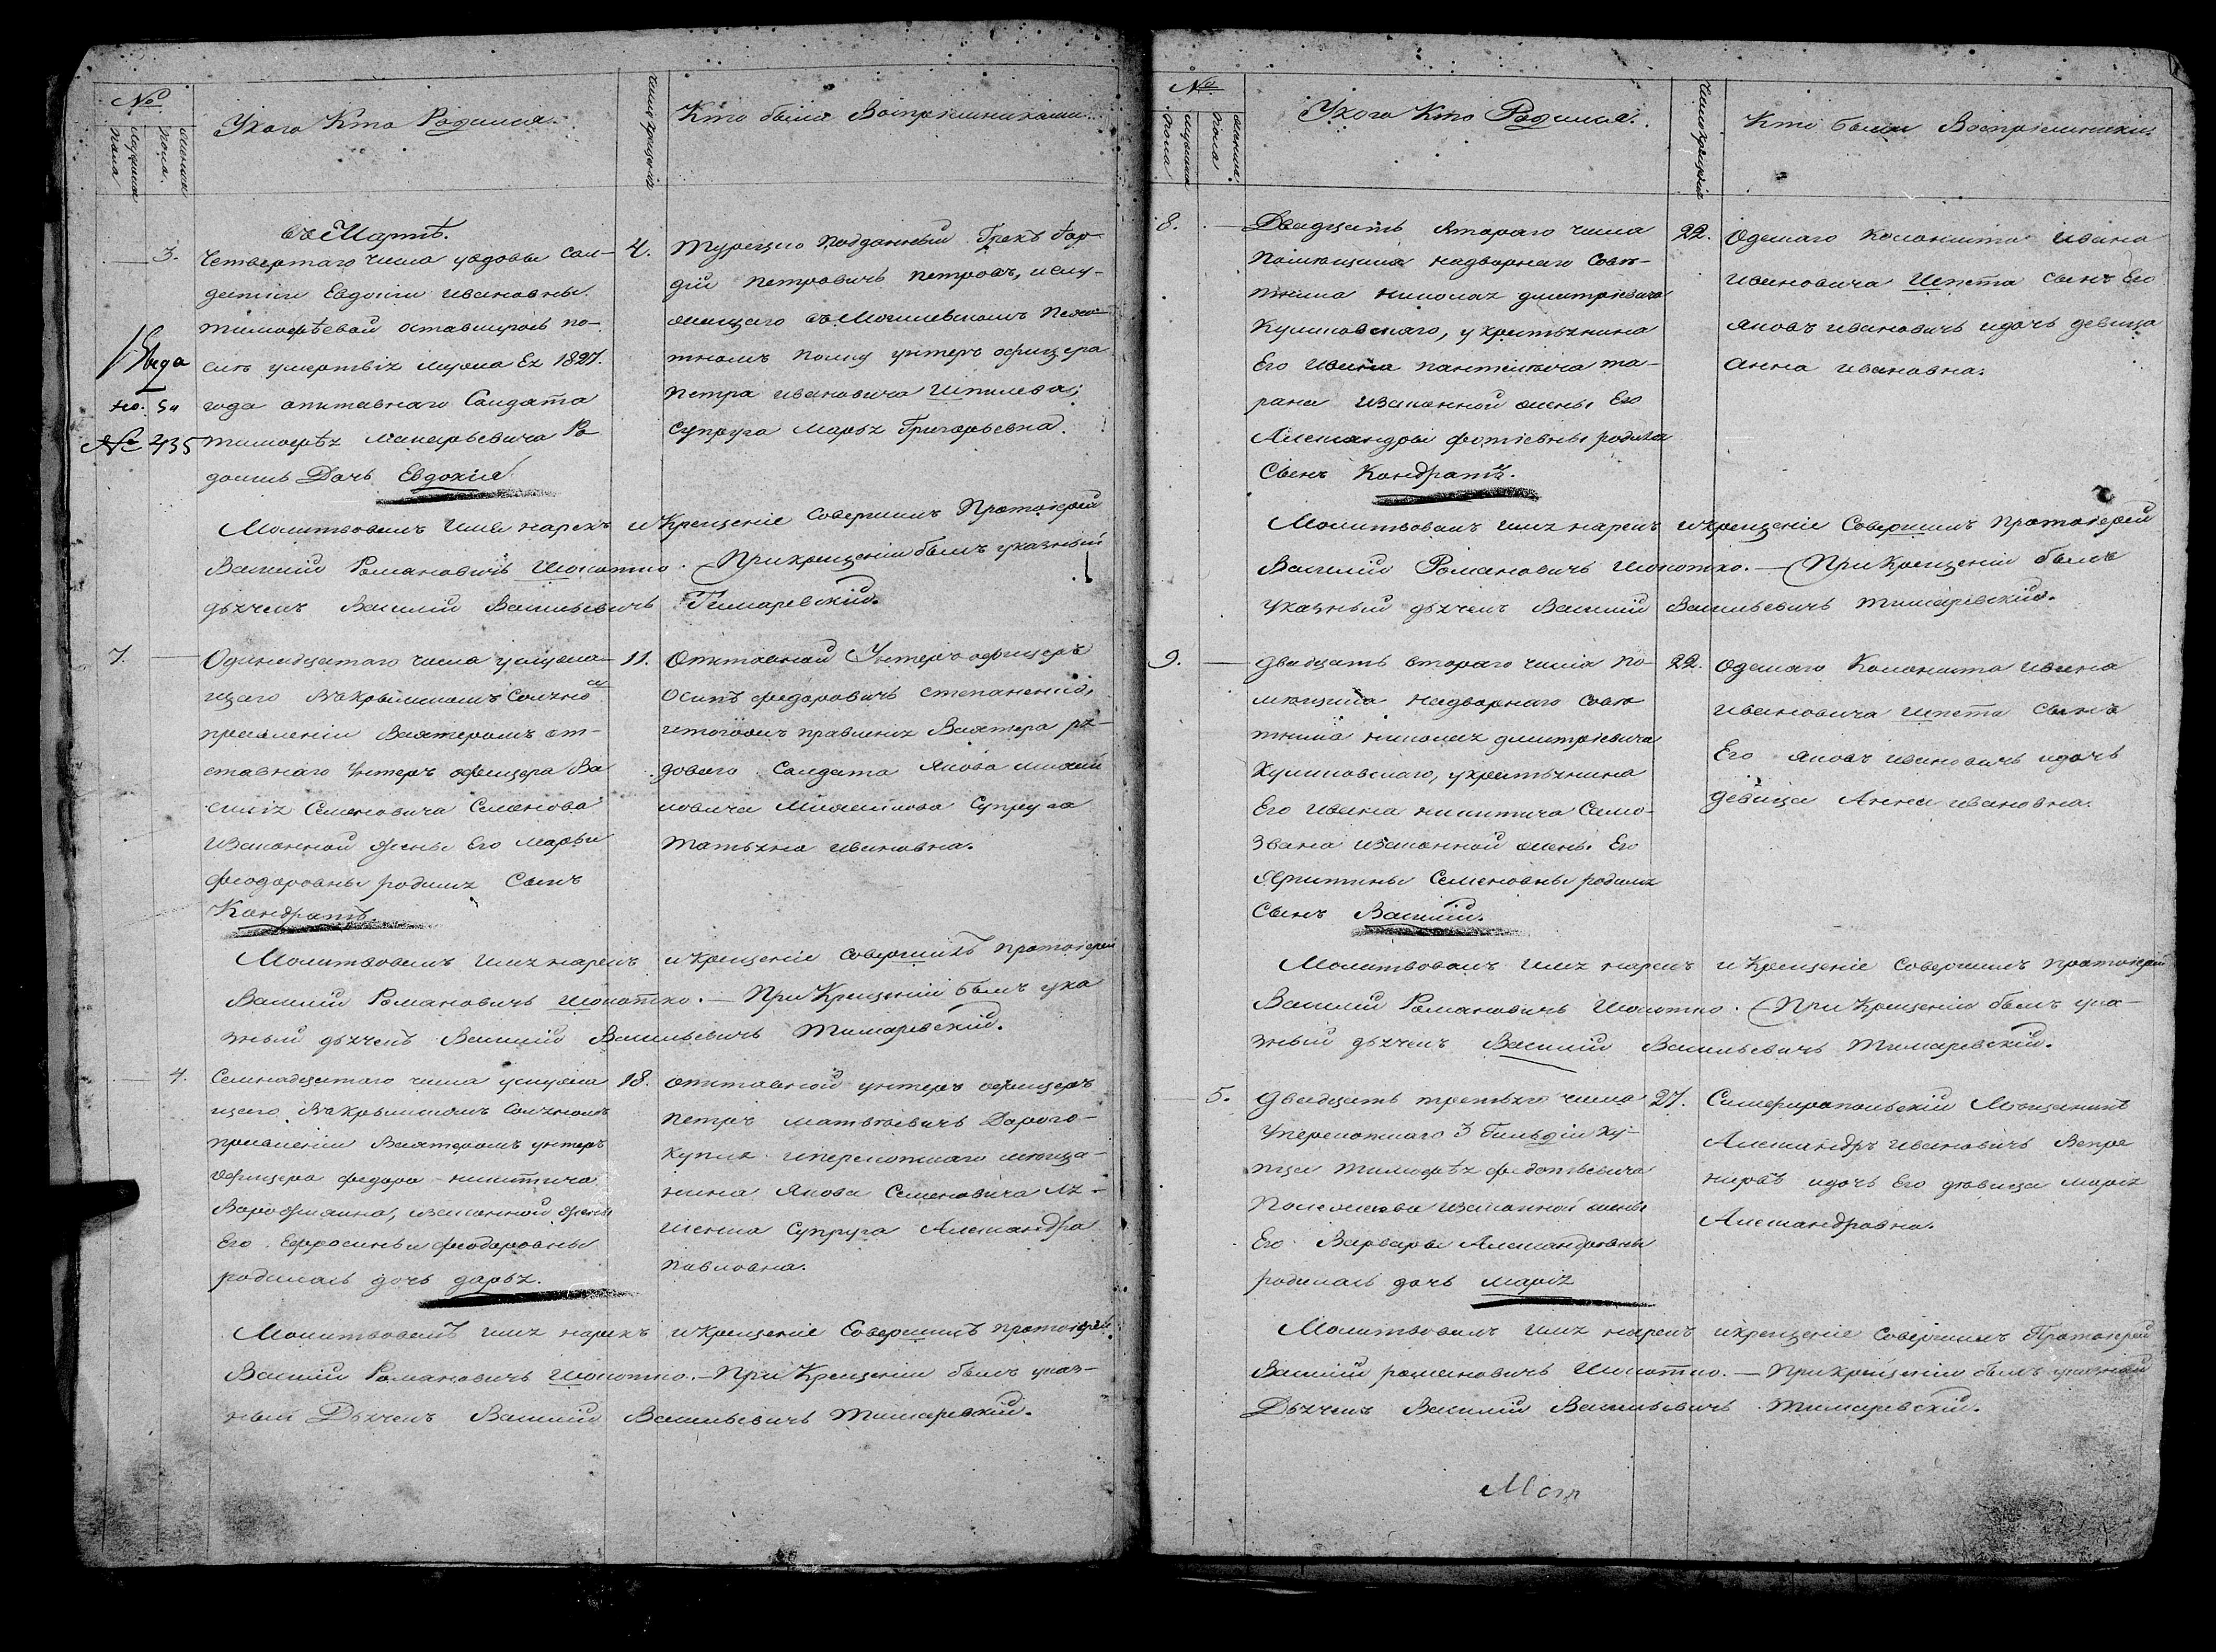 №
мужеска пола
женска пола.
У кого Кто Родился.
Число крещенія
Кто были Воспріемниками.
въ Мартѣ.
3.
Четвертаго числа у вдовы сол-
датки Евдокіи Ивановны
Тимофѣевой оставшуюсь по-
слѣ умертвія мужа Ея 1827.
года отставнаго Солдата
Тимофѣя Макарьевича Ро
дилась Дочь Евдокія
№ 435
4.
Турецко подданный Грекъ
дій Петровичъ Петровъ, и слу-
жащаго въ Могилевскомъ Пехо-
тномъ полку унтеръ офицера
Петра Ивановича Шпилева;
Супруга Марья Григорьевна.
Молитвовалъ Имя нарекъ и Крещеніе Совершилъ Протоіерей
Василій Романовичъ. При крещеніи былъ указный
дьячекъ Василій Васильевичъ Тимаревскій.
7.
Одинадцатаго числа у служа-
щаго въ Крымскомъ Соляно
правленіи Вахтеромъ от-
ставнаго Унтеръ офицера Ва
силія Семеновича Семенова
и законной жены Его Марьи
Феодоровны родился Сынъ
Кондратъ.
11.
Отставной Унтеръ офицеръ
Осипъ Федоровичъ Степаненко,
и того жъ правленія Вахтера ря-
доваго Солдата Якова Михай
ловича Михайлова Супруга
Татьяна Ивановна.
Молитвовалъ имя нарекъ и крещеніе совершилъ протоіерей
Василій Романовичъ. — При Крещеніи былъ ука
зный дьячекъ Василій Васильевичъ Тимаревскій.
4.
Семнадцатаго числа у служа
щаго въ Крымскомъ Соляномъ
правленіи Вахтеромъ унтеръ
Офицера Федора Никитича
и законной жены
Его Ефросиньи Феодоровны
родилась дочь Дарья.
18.
Отставной унтеръ офицеръ
Петръ Матвѣевичъ Дорого-
купля и перекопскаго мѣща-
нина Якова Семеновича
Супруга Александра
Павловна.
Молитвовалъ имя нарекъ и крещеніе Совершилъ протоіерей
Василій Романовичъ. — При Крещеніи былъ указ-
ный Дьячекъ Василій Васильевичъ Тимаревскій.
№
мужеска пола
женска пола.
У кого Кто Родился.
Число Крещенія
Кто были Воспріемники
8.
Двадцать втораго числа
помѣщика надворнаго Совѣ-
тника Николая Дмитріевича
Куликовскаго, у крестьянина
Его Ивана Пантелѣича Та-
рана и законной жены Его
Александры Фотіевны родился
Сынъ Кондратъ.
22.
Одескаго Колониста Ивана
Ивановича Шпета сынъ Его
Яковъ Ивановичъ и дочь девица
Анна Ивановна.
Молитвовалъ имя нарекъ и крещеніе Совершилъ протоіерей
Василій Романовичъ. — При Крещеніи былъ
указный дьячекъ Василій Васильевичъ Тимаревскій.
9.
двадцать втораго числа по-
мѣщика надворнаго совѣ
тника Николая Дмитріевича
Куликовскаго, у крестьянина
Его Ивана Никитича Само-
звана и законной жены Его
Семеновны родился
сынъ Василій.
22.
Одескаго Колониста Ивана
Ивановича Шпета сынъ
Его Яковъ Ивановичъ и дочь
девица Анна Ивановна.
Молитвовалъ имя нарекъ и Крещеніе Совершилъ протоіерей
Василій Романовичъ. При Крещеніи былъ ука-
зный дьячекъ Василій Васильевичъ Тимаревскій.
5.
двадцать третьяго числа
у перекопскаго 3 Гильдіи ку-
пца Тимофѣя Федотьевича
и законной жены
Его Варвары Александровны
родилась дочь Марія
27.
Симферопольскій Мѣщанинъ
Александръ Ивановичъ
и дочь Его дѣвица Марія
Александровна.
Молитвовалъ имя нарекъ и крещеніе Совершилъ Протоіерей
Василій Романовичъ. — При крещеніи былъ указный
Дьячекъ Василій Васильевичъ Тимаревскій.